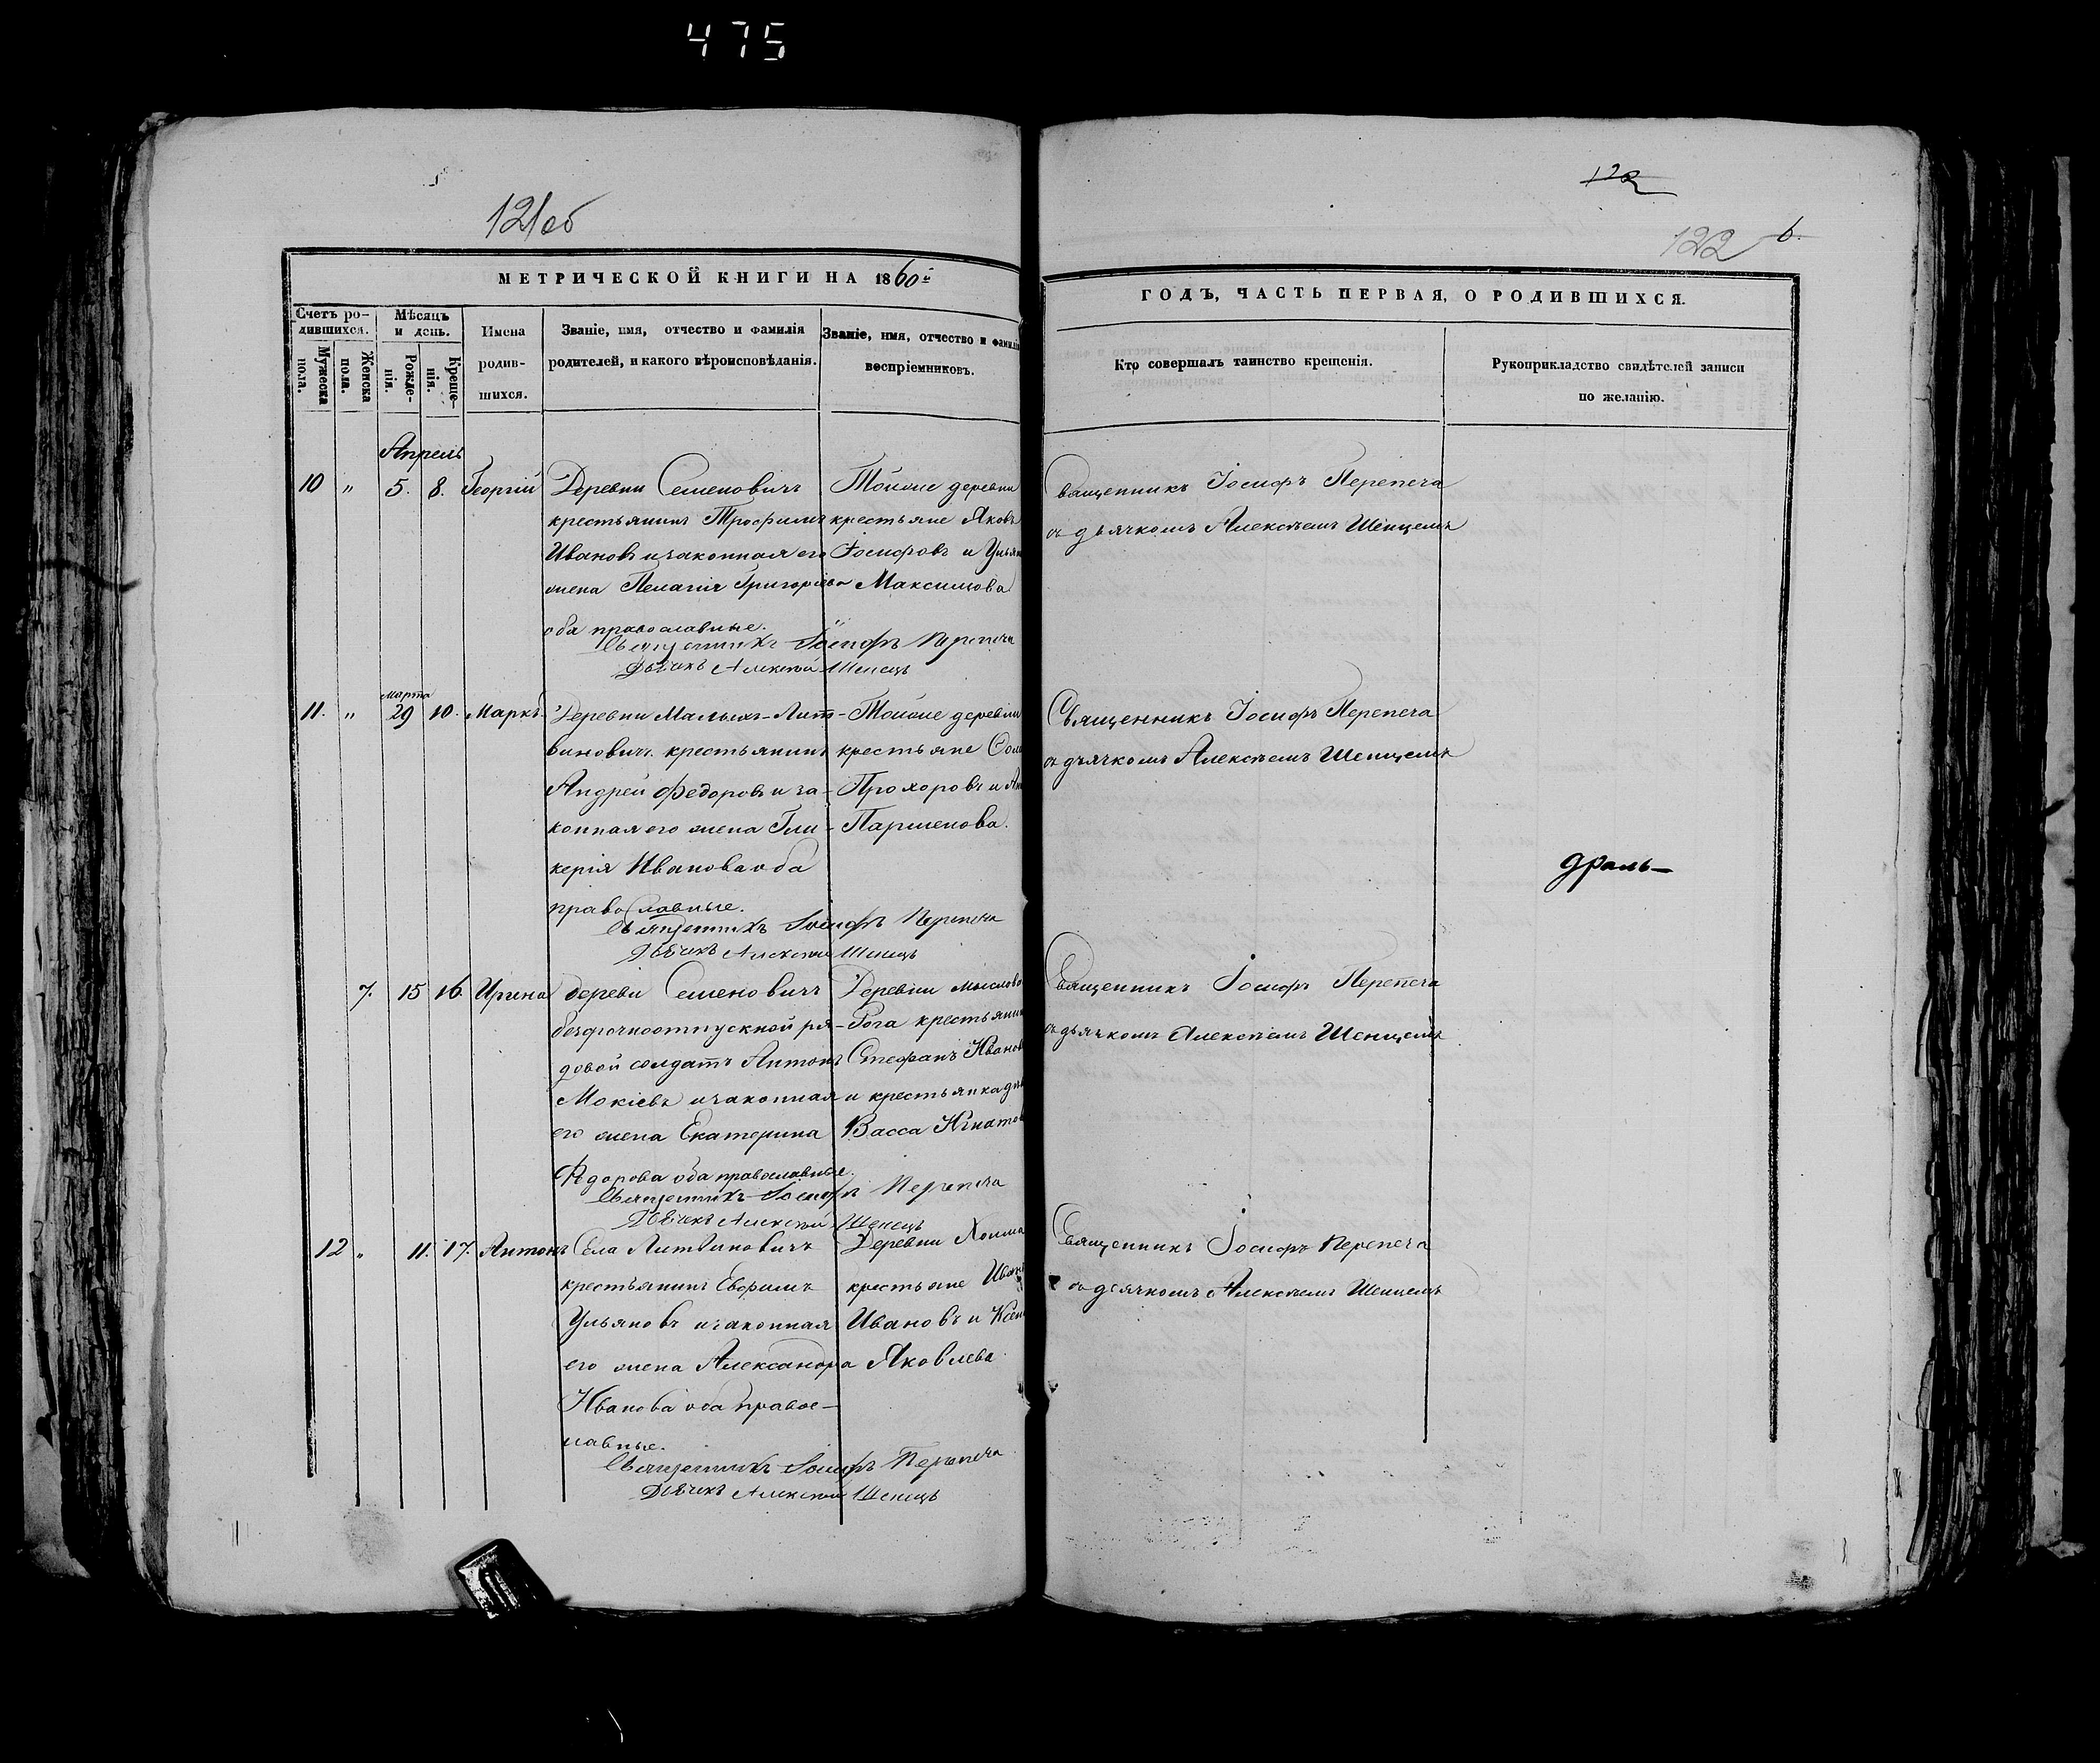 475
121об
МЕТРИЧЕСКОЙ КНИГИ НА 1860й
Счетъ ро-
дившихся.
Мужеска
пола.
Женска
пола.
Мѣсяцъ
и день.
Рожде-
нія.
Креще-
нія.
Имена
родив-
шихся.
Званіе, имя, отчество и фамилія
родителей, и какого вѣроисповѣданія.
Званіе, имя, отчество и фамилія
воспріемниковъ.
Апрель
10 " 5. 8. Георгій
Деревни Семеновичъ
крестьянинъ Трофимъ
Ивановъ и законная его
жена Пелагія Григорьева
оба православные.
Тойже деревни
крестьяне Яковъ
Іосифовъ и
Максимова
Священникъ Іосифъ Перепеча
Дьячекъ Алексѣй Шенецъ
Марта
11. " 29 10. Маркъ
Деревни Малыхъ-Лит-
виновичъ крестьянинъ
Андрей Федоровъ и за-
конная его жена Гли-
керія Иванова оба
православные.
Тойже деревни
крестьяне
Прохоровъ и
Парменова.
Священникъ Іосифъ Перепеча
Дьячекъ Алексѣй Шенецъ
7. 15 16. Ирина
деревни Семеновичъ
безсрочноотпускной ря-
довой солдатъ Антонъ
Мокіевъ и законная
его жена Екатерина
Федорова оба православные.
Деревни
Рога крестьянинъ
Стефанъ Иванов
и крестьянка
Васса Игнатов
Священникъ Іосифъ Перепеча
Дьячекъ Алексѣй Шенецъ
12 " 11. 17. Антонъ
Села Литвиновичъ
крестьянинъ Евфимъ
Ульяновъ и законная
его жена Александра
Иванова оба правос-
лавные.
Деревни
крестьяне Иванъ
Ивановъ и
Яковлева.
Священникъ Іосифъ Перепеча
Дьячекъ Алексѣй Шенецъ
122
122
6.
ГОДЪ, ЧАСТЬ ПЕРВАЯ, О РОДИВШИХСЯ.
Кто совершалъ таинство крещенія.
Рукоприкладство свидѣтелей записи
по желанію.
Священникъ Іосифъ Перепеча
съ дьячкомъ Алексѣемъ Шенцемъ
Священникъ Іосифъ Перепеча
съ дьячкомъ Алексѣемъ Шенцемъ
драль-
Священникъ Іосифъ Перепеча
съ дьячкомъ Алексѣемъ Шенцемъ
Священникъ Іосифъ Перепеча
съ дьячкомъ Алексѣемъ Шенцемъ